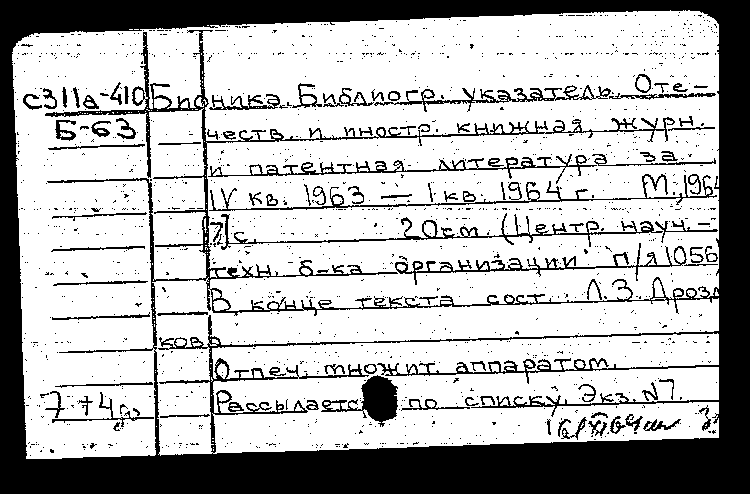 с311а-410 Бионика. Библиогр. указатель. Оте-
Б-63 честв. и иностр. книжная, журн.
и патентная литература за
IV кв. 1963 — I кв. 1964 г. М., 1964
[7] с. 20 см. (Центр. науч.-
техн. б-ка организации п/я 1056)
В конце текста сост.: Л.З. Дрозд
кова
Отпеч. множит. аппаратом.
7 + 4 Рассылаетс по списку. Экз. №7.